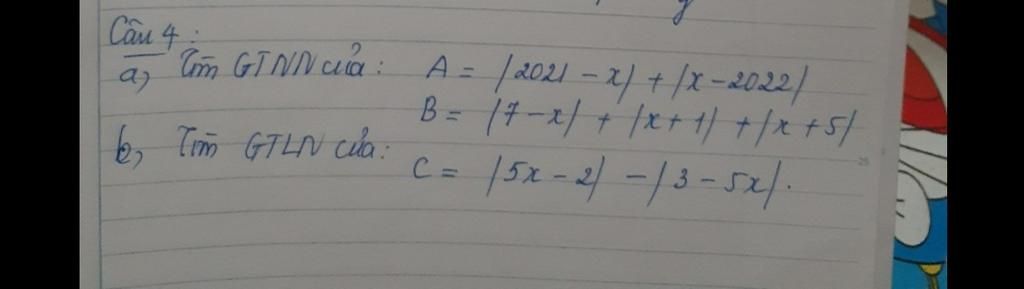 Câu 4 :
a, Tìm GTNN của : A = |2021 - x| + |x - 2022|
B = |7 - x| + |x + 1| + |x + 5|
b, Tìm GTLN của :
C = |5x - 2| - |3 - 5x| .